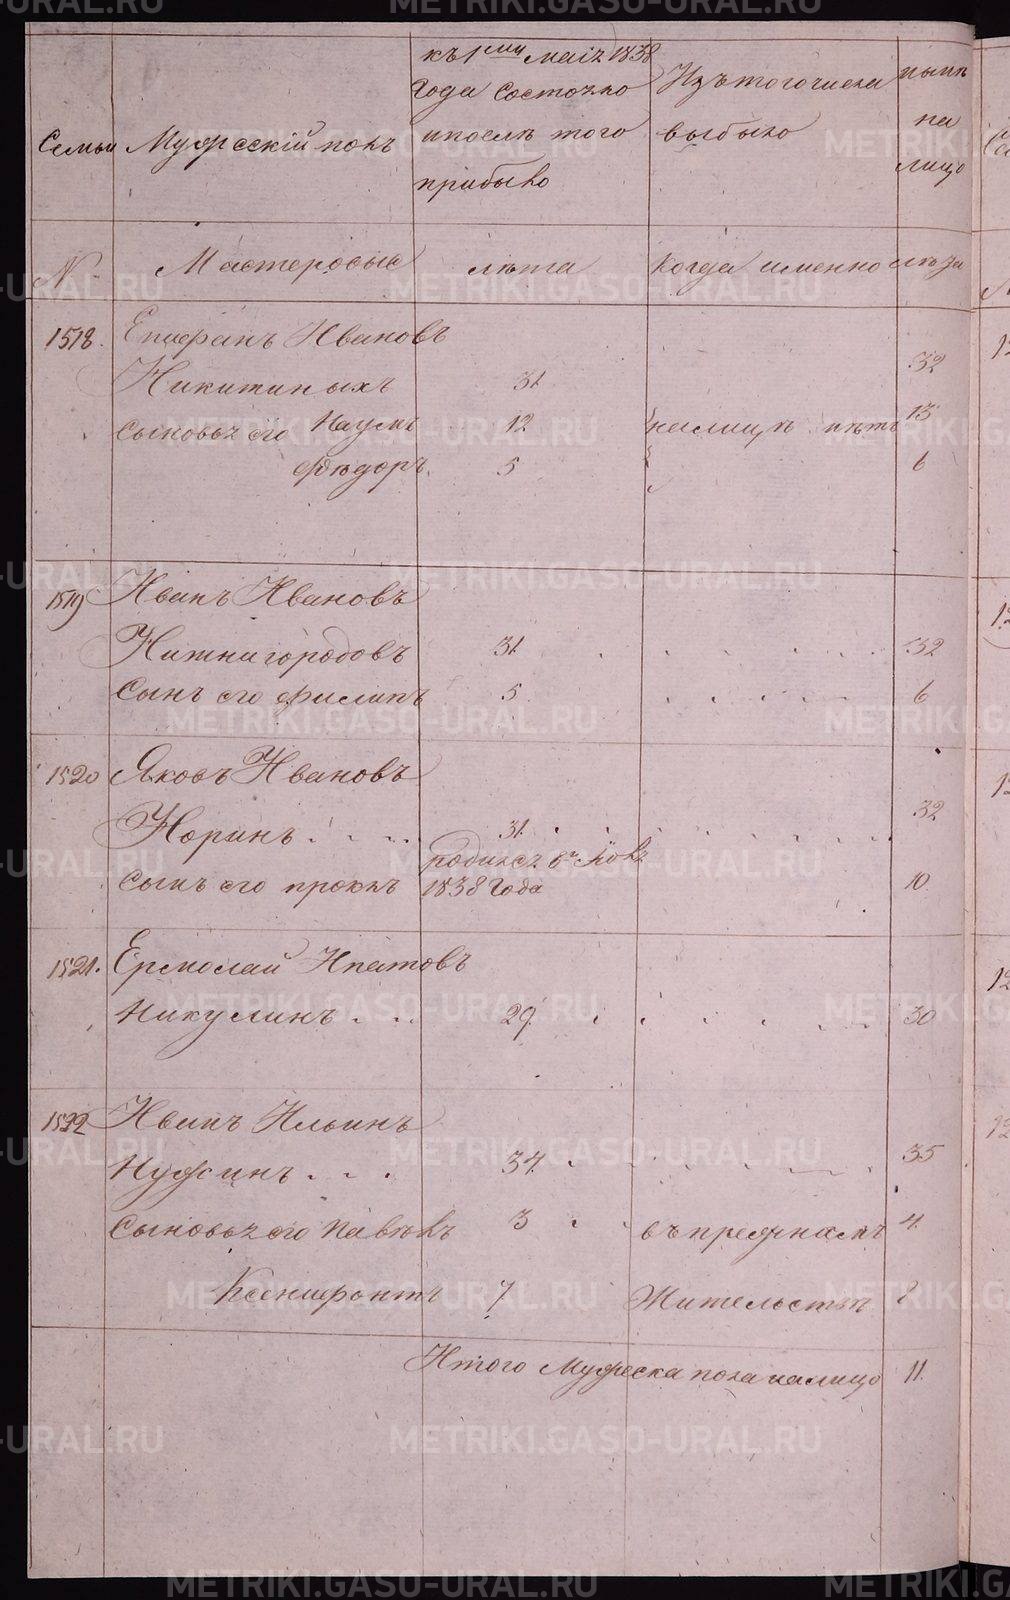 къ 1му маія 1838
года состояло
и послѣ того
прибыло
Изъ того числа
выбыло
нынѣ
на
лицо
Семьи
Мужескій полъ
№
Мастеровые
лѣта
Когда именно
лѣта
1518.
Епифанъ Ивановъ
Никитиныхъ
31
32
сыновья его Наумъ
12
налицѣ нѣтъ
13
Фѣдоръ.
5
6
1519
Иванъ Ивановъ
Нижнигородовъ
31
32
Сынъ его Филипъ
5
6
1520
Яковъ Ивановъ
Норинъ
31
32
родился 8го Ноя
Сынъ его
1838 года
10.
1521.
Ермолай Ипатовъ
Никулинъ
29
30
1522
Иванъ Ильинъ
34
35
Сыновья его Павѣлъ
3
въ прежнамъ
4
Ксенифонтъ
7
Жительствѣ
8
Итого Мужеска пола налицо
11.
METRIKI.GASO-URAL.RU